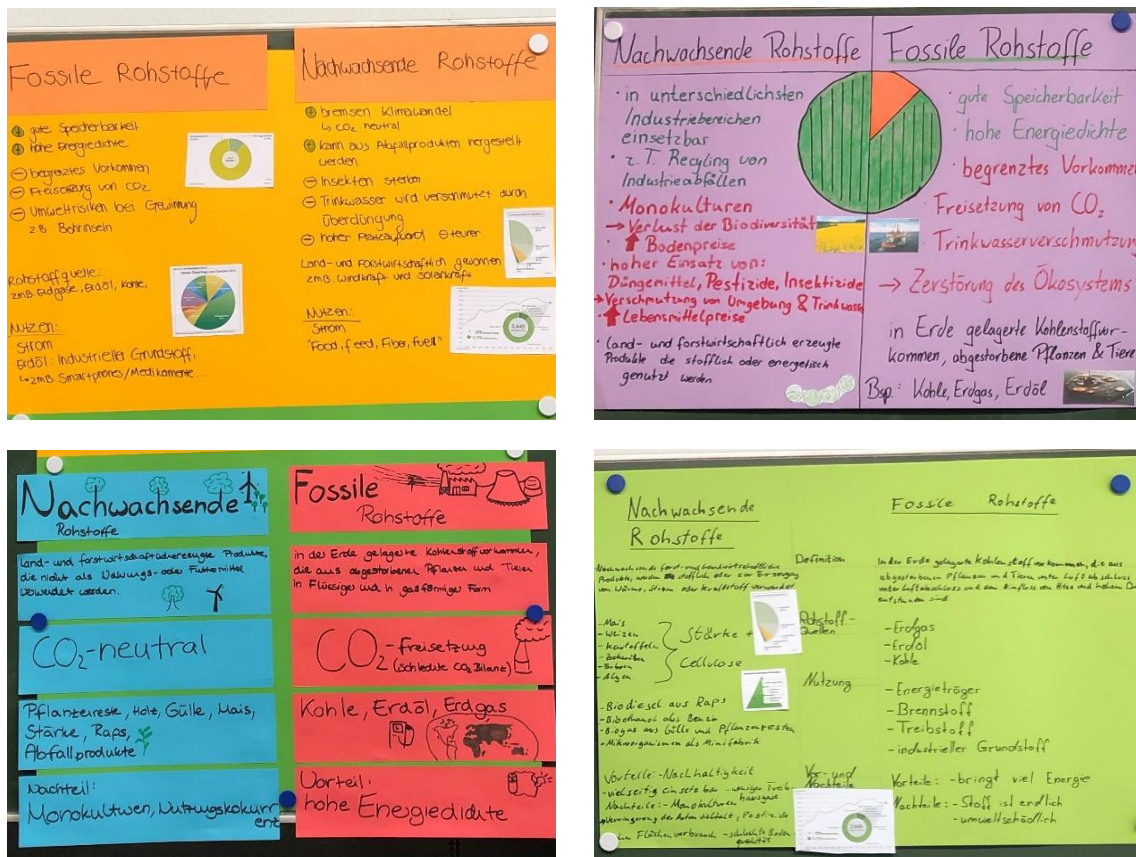 Fossile Rohstoffe
⊕ gute Speicherbarkeit
⊕ hohe Energiedichte
⊖ begrenztes Vorkommen
⊖ Freisetzung von CO₂
⊖ Umweltrisiken bei Gewinnung
z.B. Bohrinseln
Rohstoffquelle:
zmB. Erdgase, Erdöl, Kohle,
Nutzen:
Strom
Erdöl: Industrieller Grundstoff,
↳ zmB. Smartphones/Medikamente...
Nachwachsende Rohstoffe
⊕ bremsen Klimawandel
↳ CO₂ neutral
⊕ kann aus Abfallprodukten hergestellt
werden
⊖ Insekten sterben
⊖ Trinkwasser wird verschmutzt durch
Überdüngung
⊖ hoher ⊖ teurer
Land- und Forstwirtschaftlich gewonnen
zmB. Windkraft und Solarkraft
Nutzen:
Strom
"Food, feed, Fiber, Fuell"
Nachwachsende Rohstoffe
· in unterschiedlichsten
Industriebereichen
einsetzbar
· z.T. Recyling von
Industrieabfällen
· Monokulturen
→ Verlust der Biodiversität
· ↑ Bodenpreise
· hoher Einsatz von:
Düngemittel, Pestizide, Insektizide
→ Verschmutzung von Umgebung & Trinkwasse
↑ Lebensmittelpreise
· land- und forstwirtschaftlich erzeugte
Produkte die stofflich oder energetisch
genutzt werden
Fossile Rohstoffe
· gute Speicherbarkeit
· hohe Energiedichte
· begrenztes Vorkommen
· Freisetzung von CO₂
· Trinkwasserverschmutzun
→ Zerstörung des Ökosystems
in Erde gelagerte Kohlenstoffvor-
kommen, abgestorbene Pflanzen & Tiere
Bsp.: Kohle, Erdgas, Erdöl
Nachwachsende
Rohstoffe
Land- und forstwirtschaftlich erzeugte Produkte,
die nicht als Nahrungs- oder Futtermittel
verwendet werden.
CO₂-neutral
Pflanzenreste, Holz, Gülle, Mais,
Stärke, Raps,
Abfallprodukte
Nachteil:
Monokulturen, Nutzungskokurr
enz
Fossile
Rohstoffe
in der Erde gelagerte Kohlenstoffvorkommen,
die aus abgestorbenen Pflanzen und Tieren
in Flüssiger und in gasförmiger Form
CO₂-freisetzung
(schlechte CO₂ Bilanz)
Kohle, Erdöl, Erdgas
Vorteil:
hohe Energiedichte
Nachwachsende
Rohstoffe
Nachwachsende forst- und landwirtschaftliche
Produkte, werden stofflich oder zur Erzeugung
von Wärme, Strom oder Kraftstoff verwendet
-Mais
-Weizen
-Kartoffeln
-Zuckerrüben
-Erbsen
-Algen
Stärke +
Cellulose
-Biodiesel aus Raps
-Bioethanol als Benzin
-Biogas aus Gülle und Pflanzenresten
-Mikroorganismen als Minifabrik
Vorteile: -Nachhaltigkeit
-vielseitig einsetzbar -weniger Treib-
hausgase
Nachteile: -Monokulturen
Verringerung der Artenvielfalt, Pestizide
Flächenverbrauch -schlechte Boden-
qualität
Definition
Rohstoff-
Quellen
Nutzung
Vor- und
Nachteile
Fossile Rohstoffe
In der Erde gelagerte Kohlenstoffvorkommen, die aus
abgestorbenen Pflanzen und Tieren unter Luftabschluss
unter Luftabschluss und dem Einfluss von Hitze und hohem
entstanden sind
-Erdgas
-Erdöl
-Kohle
-Energieträger
-Brennstoff
-Treibstoff
-industrieller Grundstoff
Vorteile: -bringt viel Energie
Nachteile: -Stoff ist endlich
-umweltschädlich